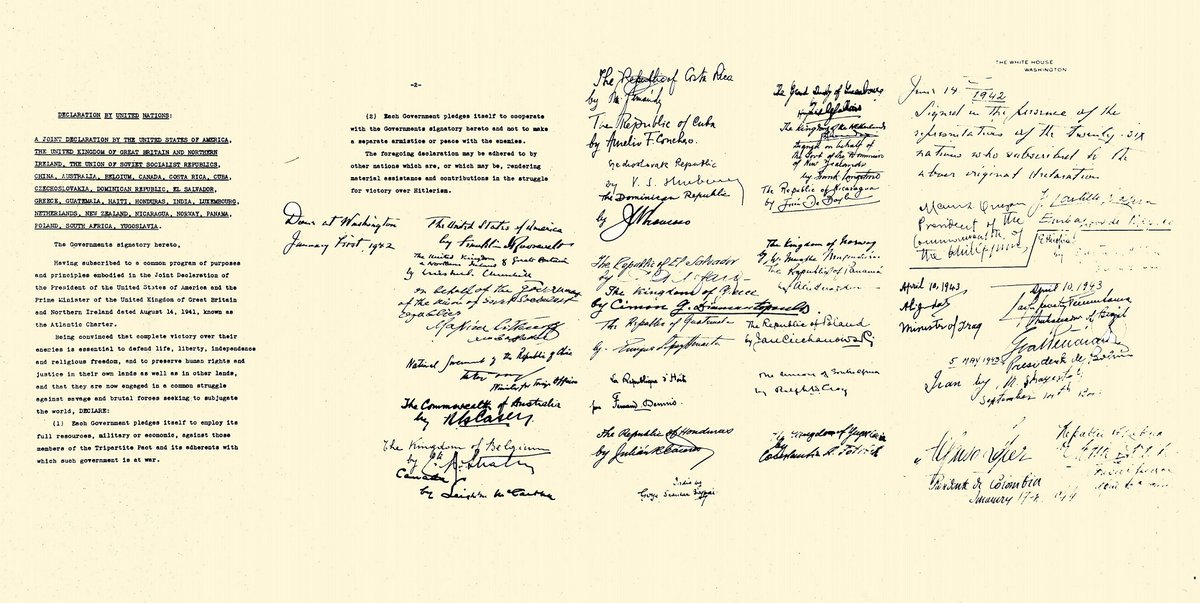 DECLARATION BY UNITED NATIONS:
A JOINT DECLARATION BY THE UNITED STATES OF AMERICA,
THE UNITED KINGDOM OF GREAT BRITAIN AND NORTHERN
IRELAND, THE UNION OF SOVIET SOCIALIST REPUBLICS,
CHINA, AUSTRALIA, BELGIUM, CANADA, COSTA RICA, CUBA,
CZECHOSLOVAKIA, DOMINICAN REPUBLIC, EL SALVADOR,
GREECE, GUATEMALA, HAITI, HONDURAS, INDIA, LUXEMBOURG,
NETHERLANDS, NEW ZEALAND, NICARAGUA, NORWAY, PANAMA,
POLAND, SOUTH AFRICA, YUGOSLAVIA.
The Governments signatory hereto,
Having subscribed to a common program of purposes
and principles embodied in the Joint Declaration of
the President of the United States of America and the
Prime Minister of the United Kingdom of Great Britain
and Northern Ireland dated August 14, 1941, known as
the Atlantic Charter.
Being convinced that complete victory over their
enemies is essential to defend life, liberty, independence
and religious freedom, and to preserve human rights and
justice in their own lands as well as in other lands,
and that they are now engaged in a common struggle
against savage and brutal forces seeking to subjugate
the world, DECLARE:
(1) Each Government pledges itself to employ its
full resources, military or economic, against those
members of the Tripartite Pact and its adherents with
which such government is at war.
-2-
(2) Each Government pledges itself to cooperate
with the Governments signatory hereto and not to make
a separate armistice or peace with the enemies.
The foregoing declaration may be adhered to by
other nations which are, or which may be, rendering
material assistance and contributions in the struggle
for victory over Hitlerism.
Done at Washington
January First 1942
The United States of America
by Franklin D Roosevelt
The United Kingdom of Great Britain
& Northern Ireland
by Winston Churchill
on behalf of the Government
of the Union of Soviet Socialist
Republics
Maxim Litvinoff
National Government of the Republic of China
Minister for Foreign Affairs
The Commonwealth of Australia
by R G Casey
The Kingdom of Belgium
by
Canada
by Leighton McCarthy
The Republic of Costa Rica
by
The Republic of Cuba
by Aurelio F. Concheso.
Republic
by V. S. Hurban
The Dominican Republic
by
The Republic of El Salvador
by
The Kingdom of Greece
by Cimon G. Diamantopoulos
The Republic of Guatemala
by.
La Republique d'Haiti
Fernand Dennis.
The Republic of Honduras
by Julián R Cáceres
India by
Girja Shankar Bajpai
The Grand Duchy of Luxembourg
The Kingdom of the Netherlands
Signed on behalf of
the Govt of the Dominion
of New Zealand
by Frank Langstone
The Republic of Nicaragua
by
The Kingdom of Norway
by W. Munthe Morgenstierne
The Republic of Panamá
by
The Republic of Poland
by Jan Ciechanowski
The Union of South Africa
by Ralph W Close
The Kingdom of Yugoslavia
by
Constantin A. Fotitch
THE WHITE HOUSE
WASHINGTON
June 14 1942
Signed in the presence of the
representatives of the twenty-six
nations who subscribed to the
above original declaration.
Manuel Quezon
President of the
Commonwealth of
the Philippines
(Ethiopia)
April 10, 1943
Minister of Iraq
April 10, 1943
5 MAY 1943
Presidente de Bolivia
Iran by M. Shayesteh
September 10th
Alfonso López
Presidente de Colombia
January 17